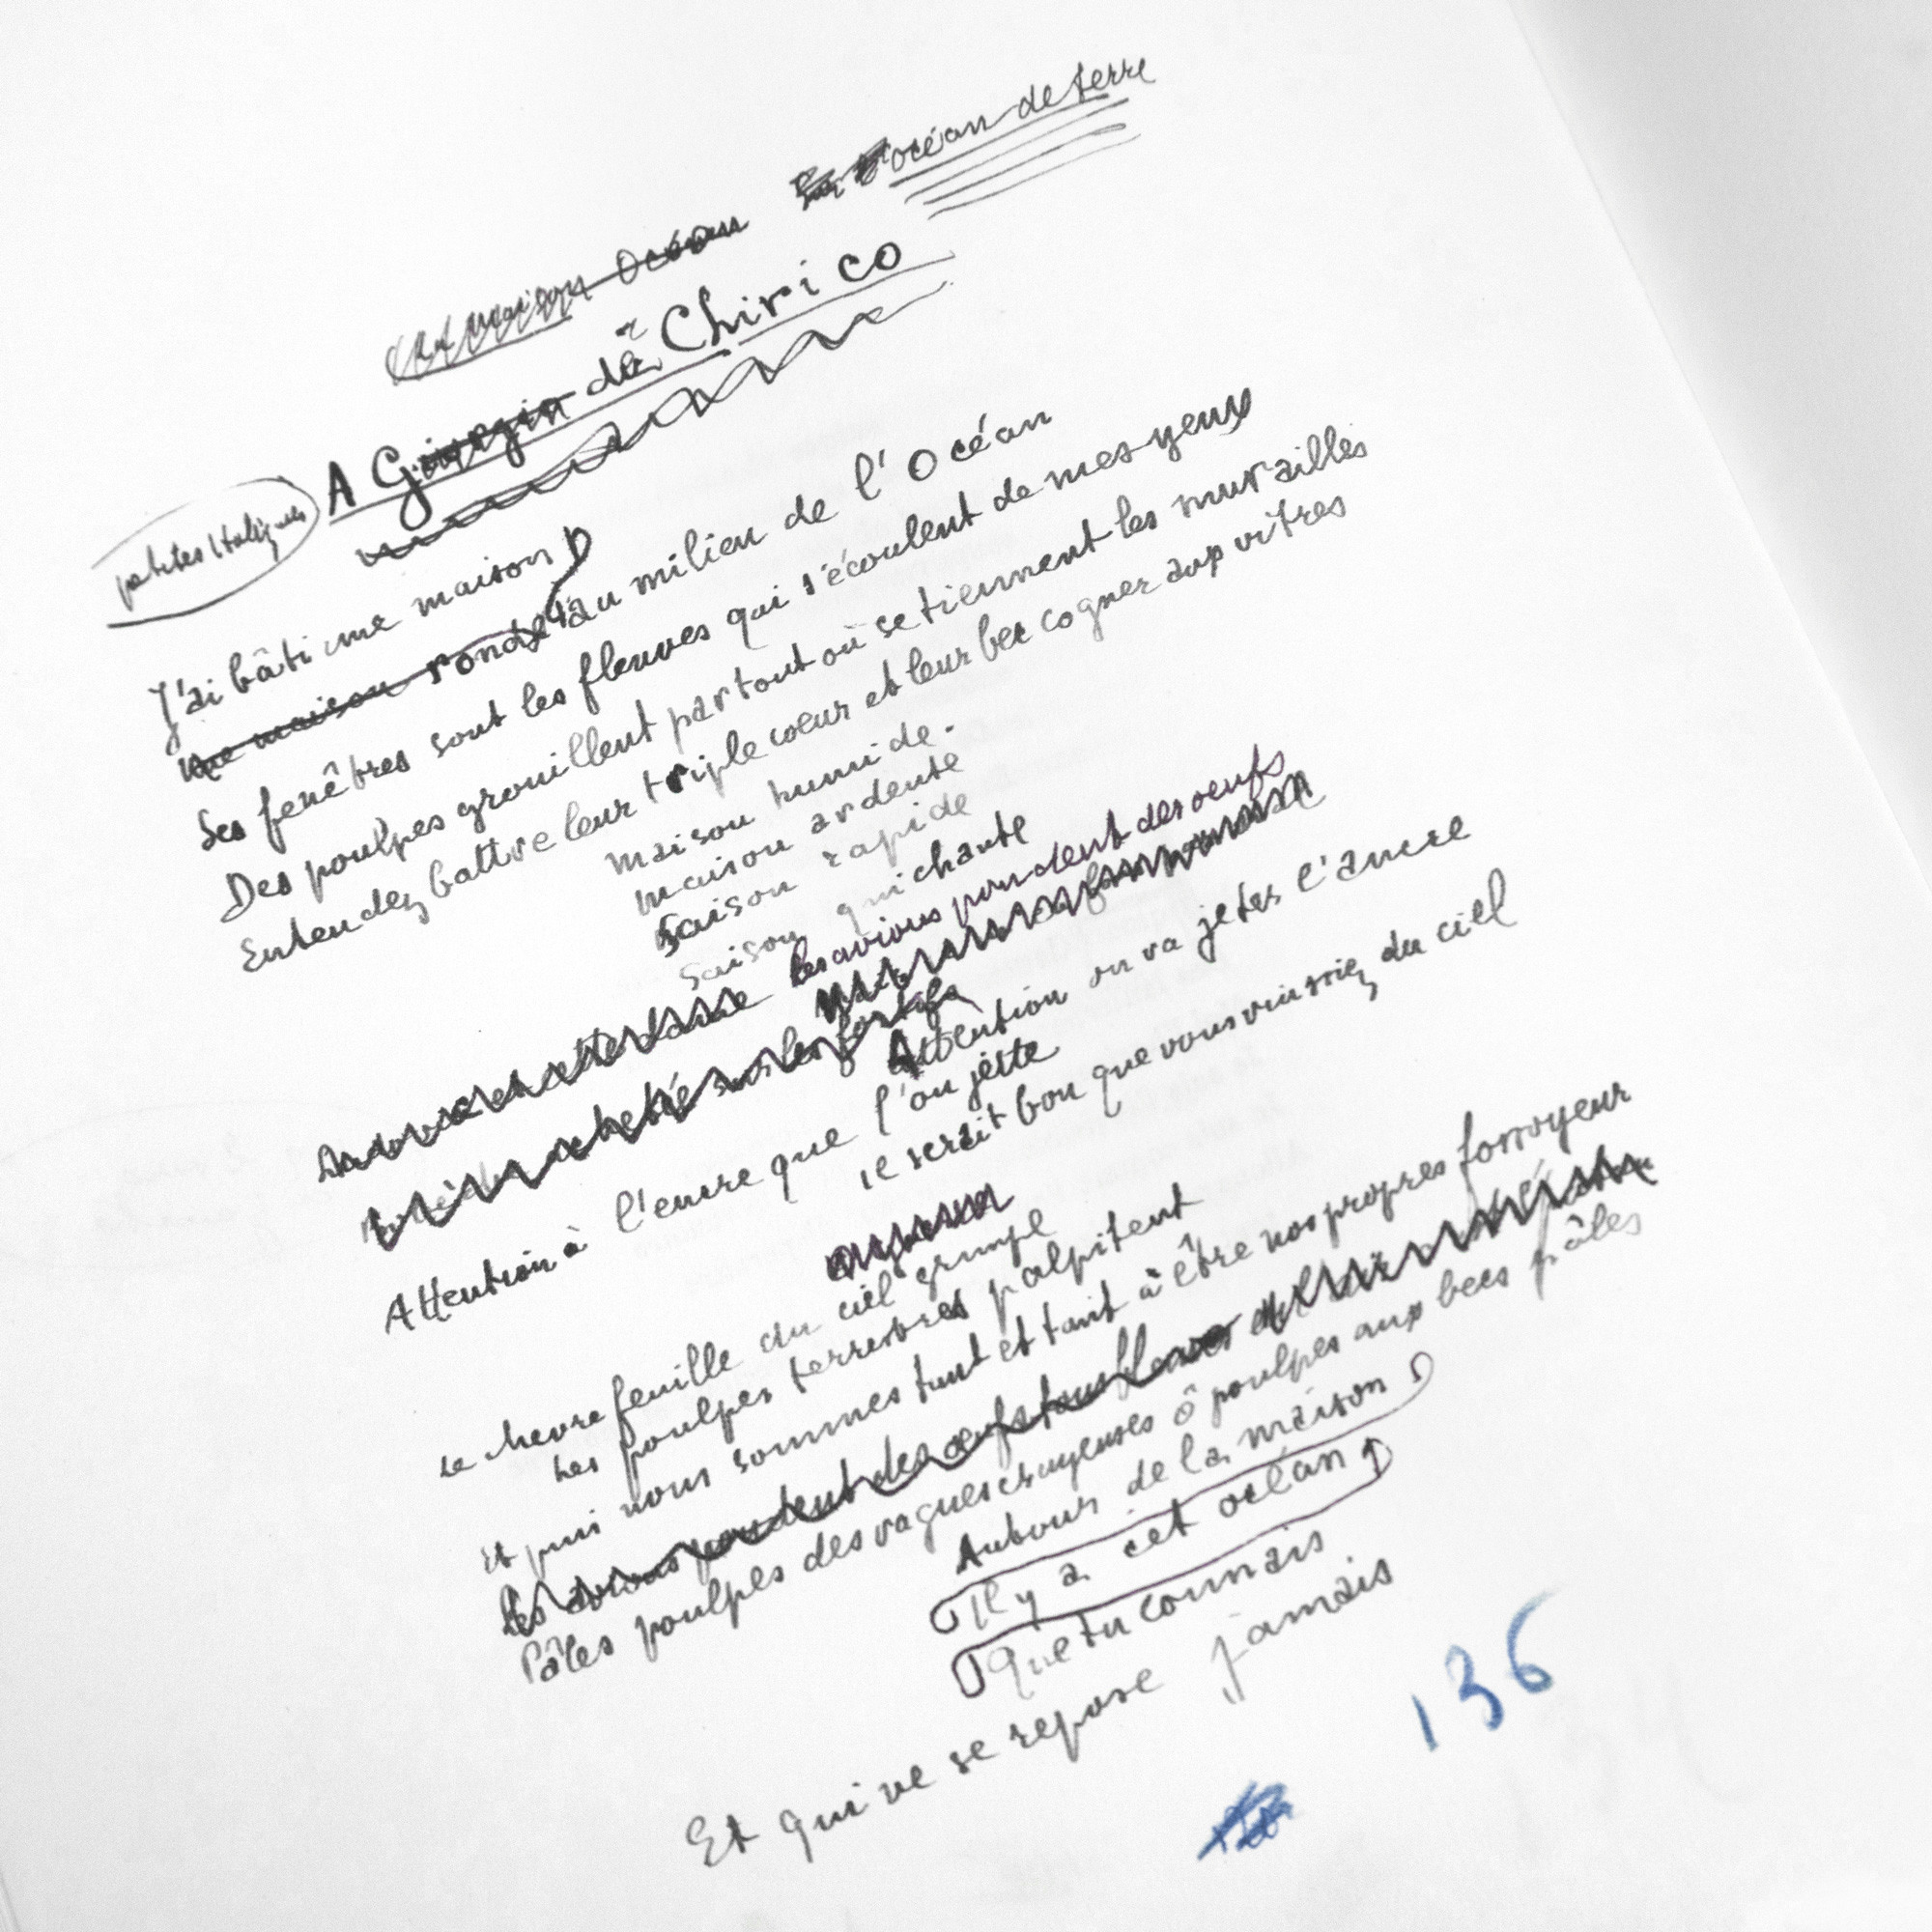 océan de terre
Océan
A G de Chirico
petites italiques
J'ai bâti une maison
une maison ronde au milieu de l'Océan
Ses fenêtres sont les fleuves qui s'écoulent de mes yeux
Des poulpes grouillent partout où se tiennent les murailles
Entendez battre leur triple coeur et leur bec cogner aux vitres
Maison humide.
Maison ardente
Saison rapide
Saison qui chante
les avions pondent des oeufs
Attention on va jeter l'ancre
Attention à l'encre que l'on jette
il serait bon que vous vinssiez du ciel
Le chèvrefeuille du ciel grimpe
Les poulpes terrestres palpitent
Et puis nous sommes tant et tant à être nos propres fossoyeur
Les avions pondent des oeufs
Pâles poulpes des vagues crayeuses ô poulpes aux becs pâles
Autour de la maison
Il y a cet océan
Que tu connais
Et qui ne se repose jamais
136